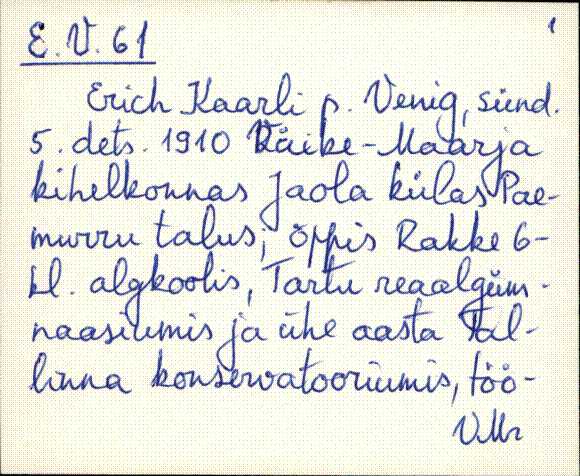 1
E.V. 61
Erich Kaarli p. Venig, sünd.
5. dets. 1910 Väike-Maarja
kihelkonnas Jaola külas Pae-
murru talus; õppis Rakke 6-
kl. algkoolis, Tartu reaalgüm-
naasiumis ja ühe aasta Tal-
linna konservatooriumis, töö-
V.Mr